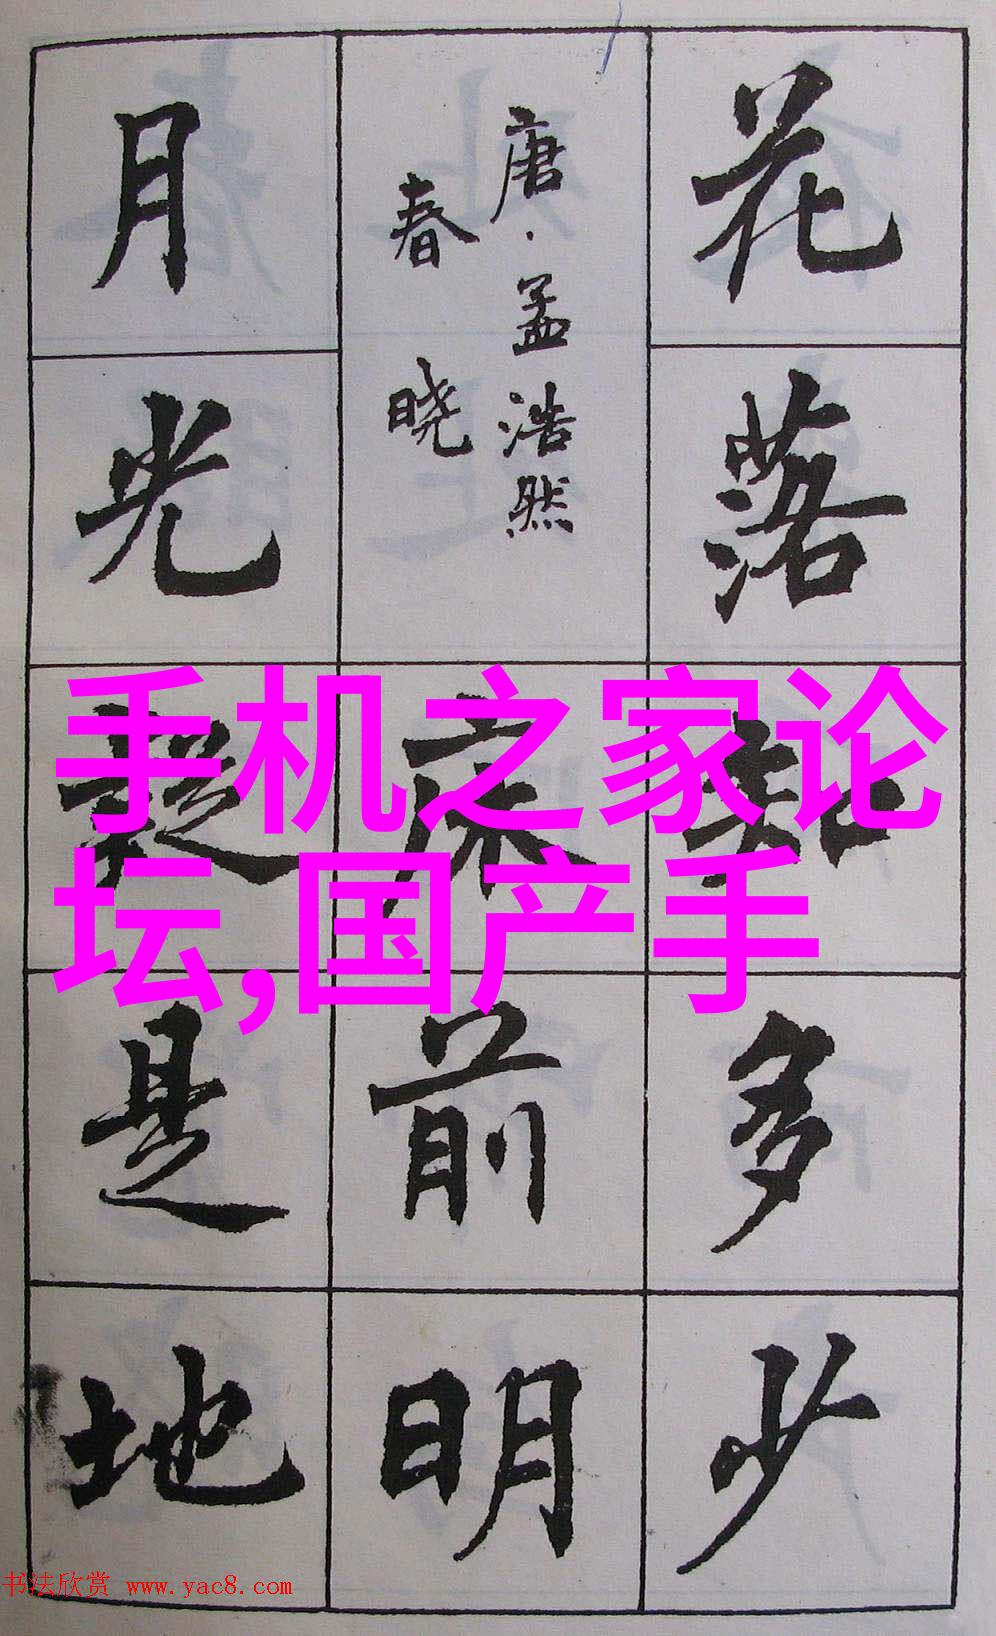 花落知多少
唐·孟浩然
春晓
床前明
月光疑是地
手机之家论
坛,国产手
书法欣赏 www.yac8.com